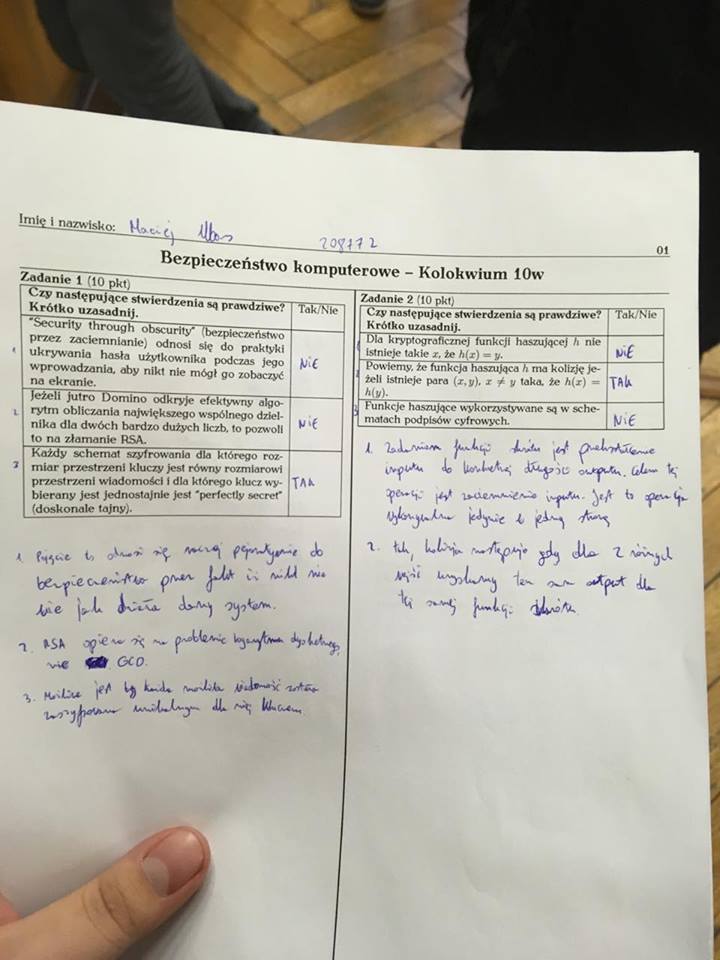 Imię i nazwisko: Maciej
208772
01
Bezpieczeństwo komputerowe – Kolokwium 10w
Zadanie 1 (10 pkt)
Czy następujące stwierdzenia są prawdziwe? Tak/Nie
Krótko uzasadnij.
1 "Security through obscurity" (bezpieczeństwo
przez zaciemnianie) odnosi się do praktyki
ukrywania hasła użytkownika podczas jego NIE
wprowadzania, aby nikt nie mógł go zobaczyć
na ekranie.
2 Jeżeli jutro Domino odkryje efektywny algo-
rytm obliczania największego wspólnego dziel-
nika dla dwóch bardzo dużych liczb, to pozwoli NIE
to na złamanie RSA.
3 Każdy schemat szyfrowania dla którego roz-
miar przestrzeni kluczy jest równy rozmiarowi
przestrzeni wiadomości i dla którego klucz wy- TAK
bierany jest jednostajnie jest "perfectly secret"
(doskonale tajny).
1. Pojęcie to odnosi się raczej pejoratywnie do
bezpieczeństwa przez fakt iż nikt nie
wie jak działa dany system.
2. RSA opiera się na problemie logarytmu dyskretnego,
nie GCD.
3. Możliwe jest by każda możliwa wiadomość została
zaszyfrowana unikalnym dla niej kluczem.
Zadanie 2 (10 pkt)
Czy następujące stwierdzenia są prawdziwe? Tak/Nie
Krótko uzasadnij.
Dla kryptograficznej funkcji haszującej h nie
istnieje takie x, że h(x) = y. NIE
Powiemy, że funkcja haszująca h ma kolizję je-
żeli istnieje para (x, y), x ≠ y taka, że h(x) = TAK
h(y).
3 Funkcje haszujące wykorzystywane są w sche-
matach podpisów cyfrowych. NIE
1. Zadaniem funkcji skrótu jest przekształcenie
inputu do konkretnej długości outputu. Celem tej
operacji jest zaciemnienie inputu. Jest to operacja
wykonywalna jedynie w jedną stronę
2. Tak, kolizja następuje gdy dla 2 różnych
wejść uzyskamy ten sam output dla
tej samej funkcji skrótu.